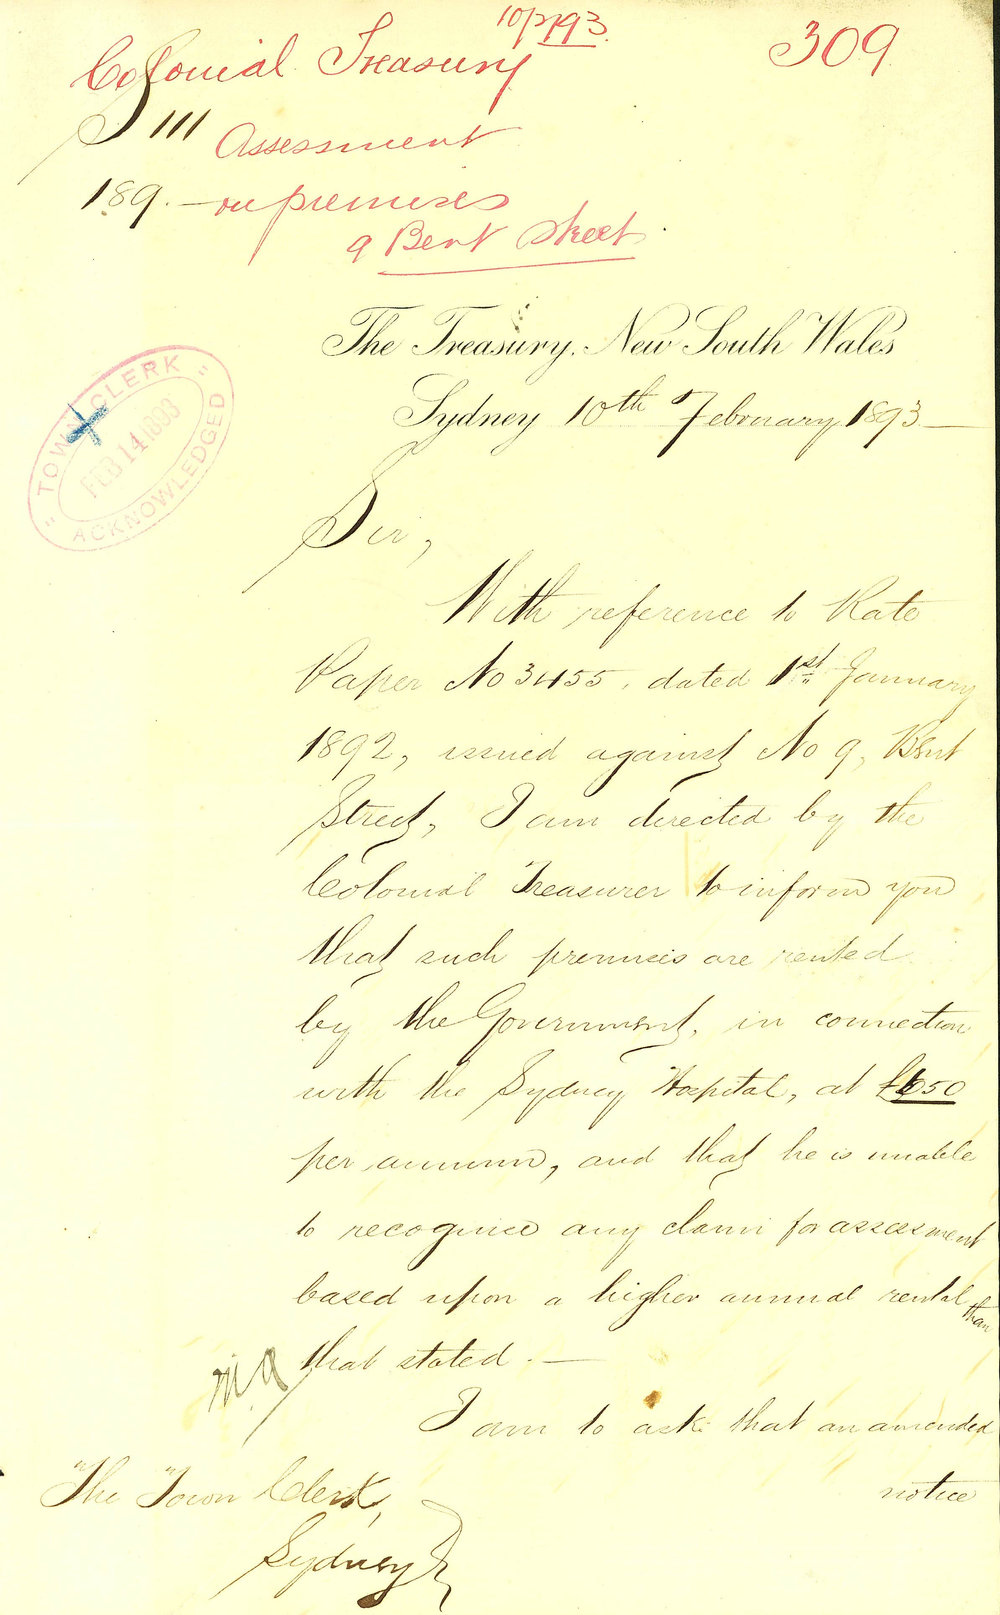 10/2/93
309
Colonial Treasury
S 111 Assessment
189. – on premises
9 Bent Street
The Treasury, New South Wales
Sydney 10th February 1893
"TOWN CLERK"
FEB 14 1893
ACKNOWLEDGED
Sir,
With reference to Rate
Paper No 3455, dated 1st January
1892, issued against No 9, Bent
Street, I am directed by the
Colonial Treasurer to inform you
that such premises are rented
by the Government, in connection
with the Sydney Hospital, at
per annum, and that he is unable
to recognise any claim for assessment
based upon a higher annual rental than
that stated. —
I am to ask that an amended
notice
The Town Clerk,
Sydney